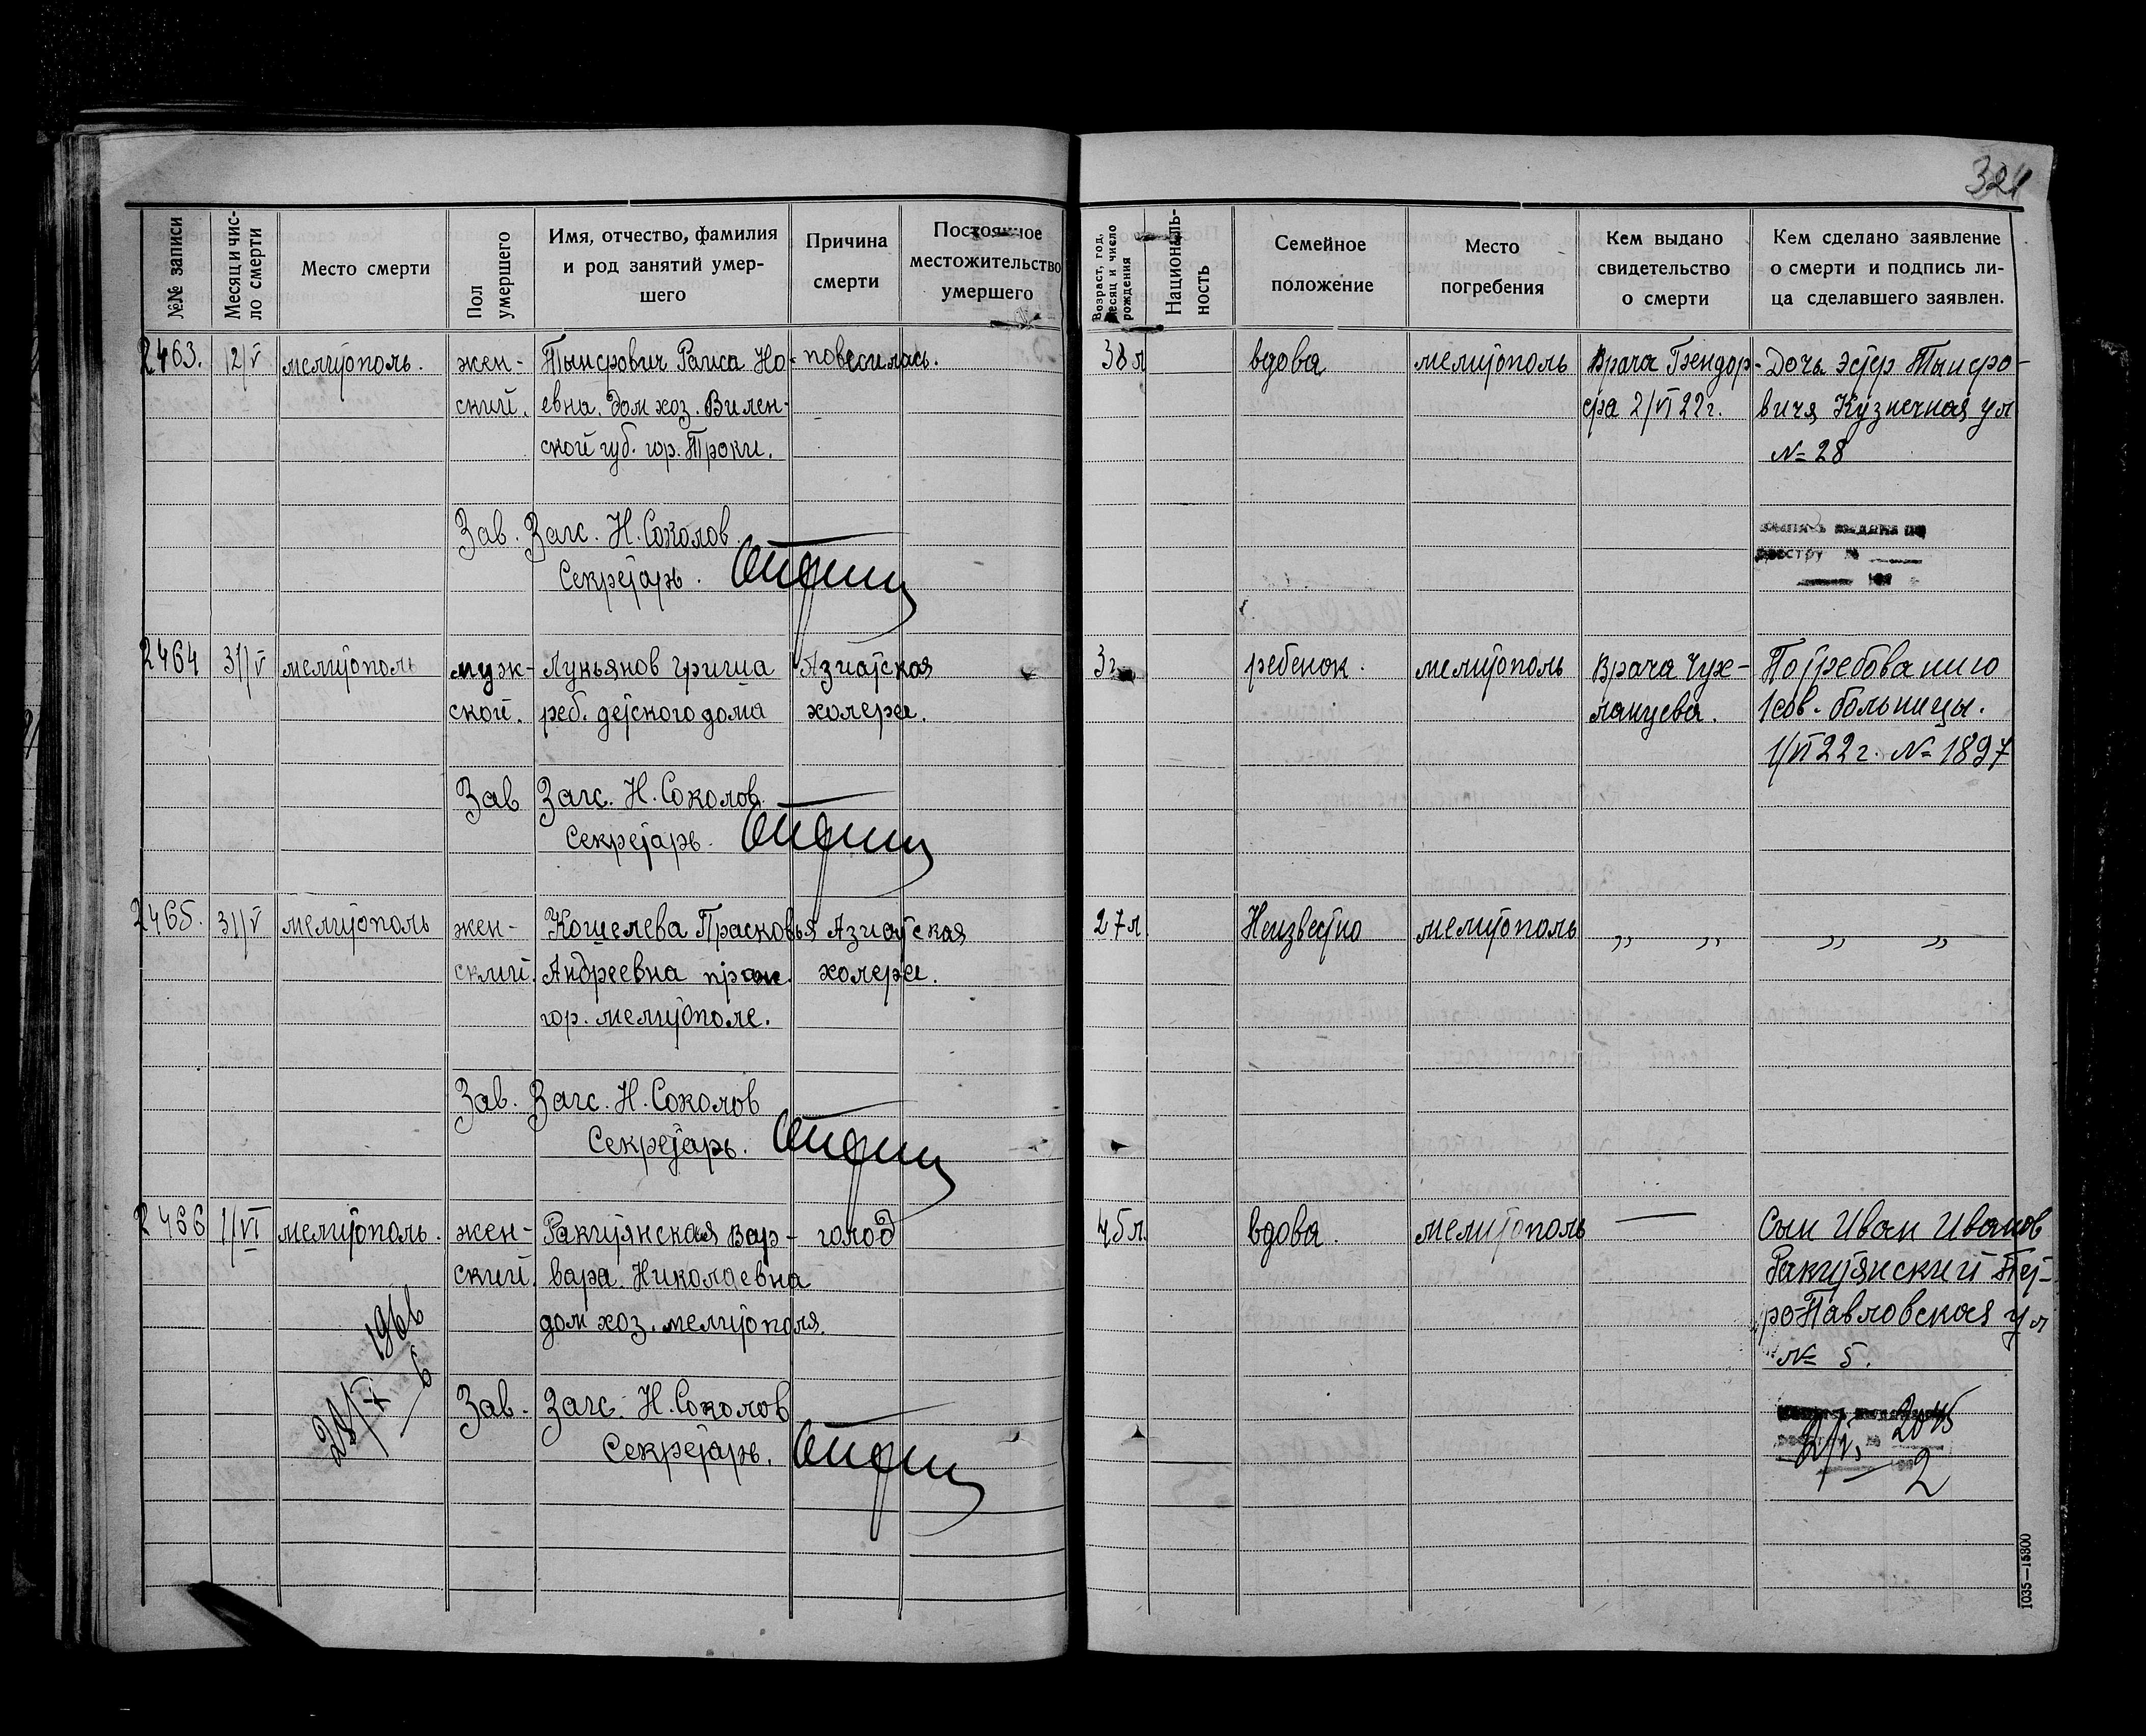 321
№№ записи
Месяц и чис-
ло смерти
Место смерти
Пол
умершего
Имя, отчество, фамилия
и род занятий умер-
шего
Причина
смерти
Постоянное
местожительство
умершего
Возраст, год,
месяц и число
рождения
Националь-
ность
Семейное
положение
Место
погребения
Кем выдано
свидетельство
о смерти
Кем сделано заявление
о смерти и подпись ли-
ца сделавшего заявлен.
2463. 2/V мелитополь. жен- Тынфович Раиса Но- повесилась. 38 л вдова мелитополь Врача Гендор- Дочь Эстер Тынфо-
ский. евна. Дом хоз. Вилен- фа 2/VI 22 г. вичя Кузнечная ул
ской губ. гор. Троки. № 28
Зав. Загс. Н. Соколов.
Секретарь.
реестру №
2464 31/V мелитополь муж- Лукьянов Гриша Азиатская 3 г. ребенок. мелитополь Врача Чух- По требованию
ской. реб. детского дома холера. ланцева. 1 сов. больницы.
1/VI 22 г. № 1897
Зав Загс. Н. Соколов.
Секретарь.
2465. 31/V мелитополь жен- Кошелева Прасковья Азиатская 27 л Неизвестно мелитополь „ „ „ „
ский. Андреевна холера.
гор. мелитополе.
Зав. Загс. Н. Соколов
Секретарь.
2466 1/VI мелитополь. жен- Ракитянская Вар- голод 45 л. вдова. мелитополь — Сын Иван Иванов
ский. вара Николаевна Ракитянский Пет-
дом хоз. мелитополя. ро-Павловская ул
№ 5.
Зав. Загс. Н. Соколов
Секретарь.
1035—15800